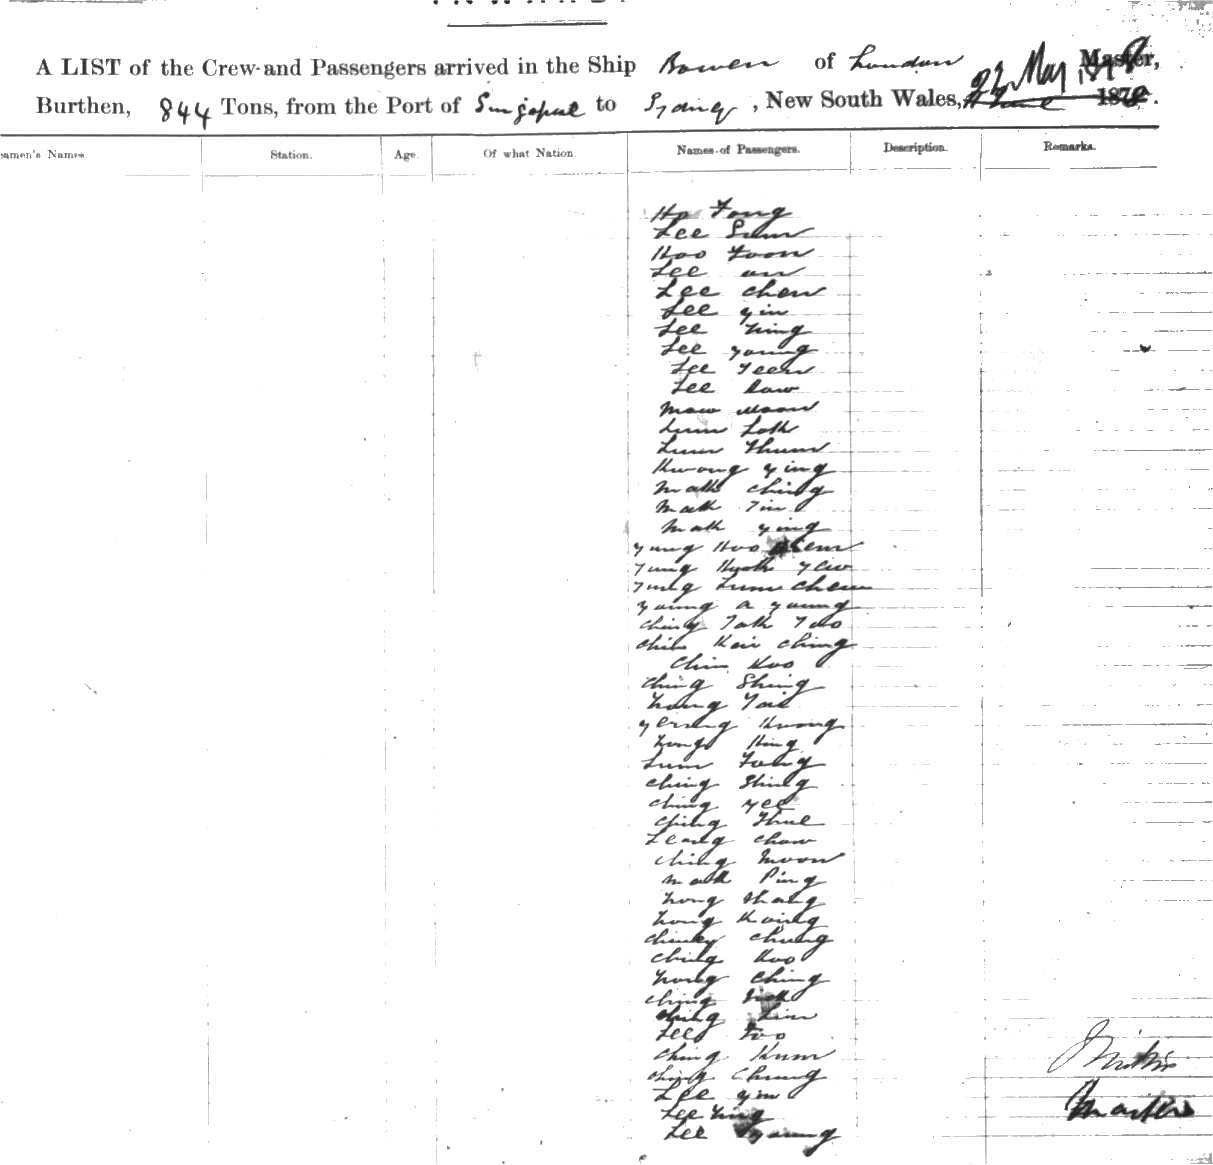 A LIST of the Crew and Passengers arrived in the Ship Bowen of London Master,
Burthen, 844 Tons, from the Port of Singapore to Sydney, New South Wales, 22 May 1878.
Names
Station.
Age.
Of what Nation.
Names of Passengers.
Description.
Remarks.
Ho Fong
Lee Sum
Hoo Foon
Lee an
Lee chew
Lee yin
Lee hing
Lee young
Lee Teen
Lee Kaw
Maw Moon
Lum Loth
Lum Thum
Kwong ying
Math ching
Math Tin
Math ying
yung Hoo
yung Hyoth yew
yung Lum chew
young a young
ching Tath Two
chin Kew ching
chin Koo
ching Shing
hong Tai
yerung Kwong
hong Hing
Lum Fong
ching Shing
ching yee
ching Thue
Leang chow
ching moon
math Ping
hong Shang
hong Kwing
chung
ching Koo
hong Ching
ching
ching Lin
Lee Foo
ching Kum
ching Chung
Lee yin
Lee hing
Lee young
Master